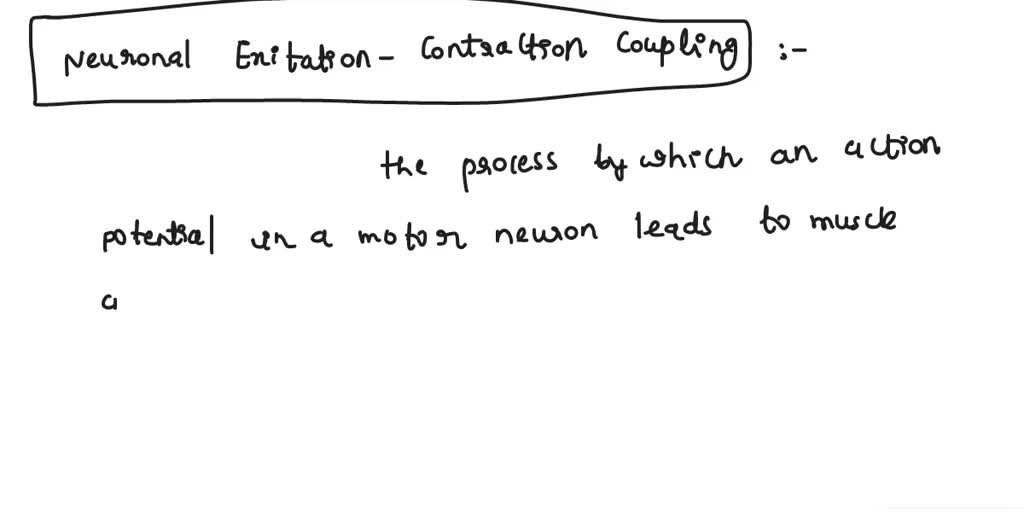 Neuronal Exitation - Contraction Coupling :-
the process by which an action
potential in a motor neuron leads to muscle
a